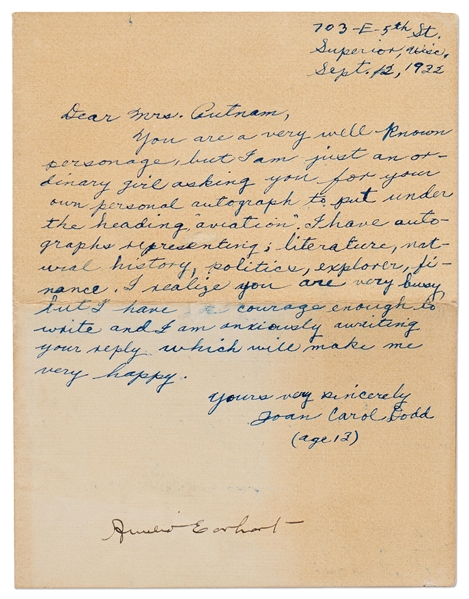 703-E-5th St.
Superior, Wisc.
Sept. 12, 1932
Dear Mrs. Putnam,
You are a very well known
personage, but I am just an or-
dinary girl asking you for your
own personal autograph to put under
the heading, "aviation". I have auto-
graphs representing; literature, nat-
ural history, politics, explorer, fi-
nance. I realize you are very busy
but I have courage enough to
write and I am anxiously awaiting
your reply which will make me
very happy.
Yours very sincerely
Joan Carol Dodd
(age 13)
Amelia Earhart